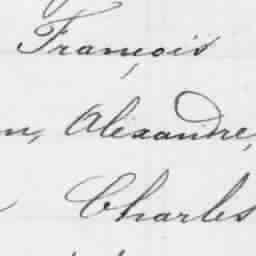 François
n, Alexandre,
Charles